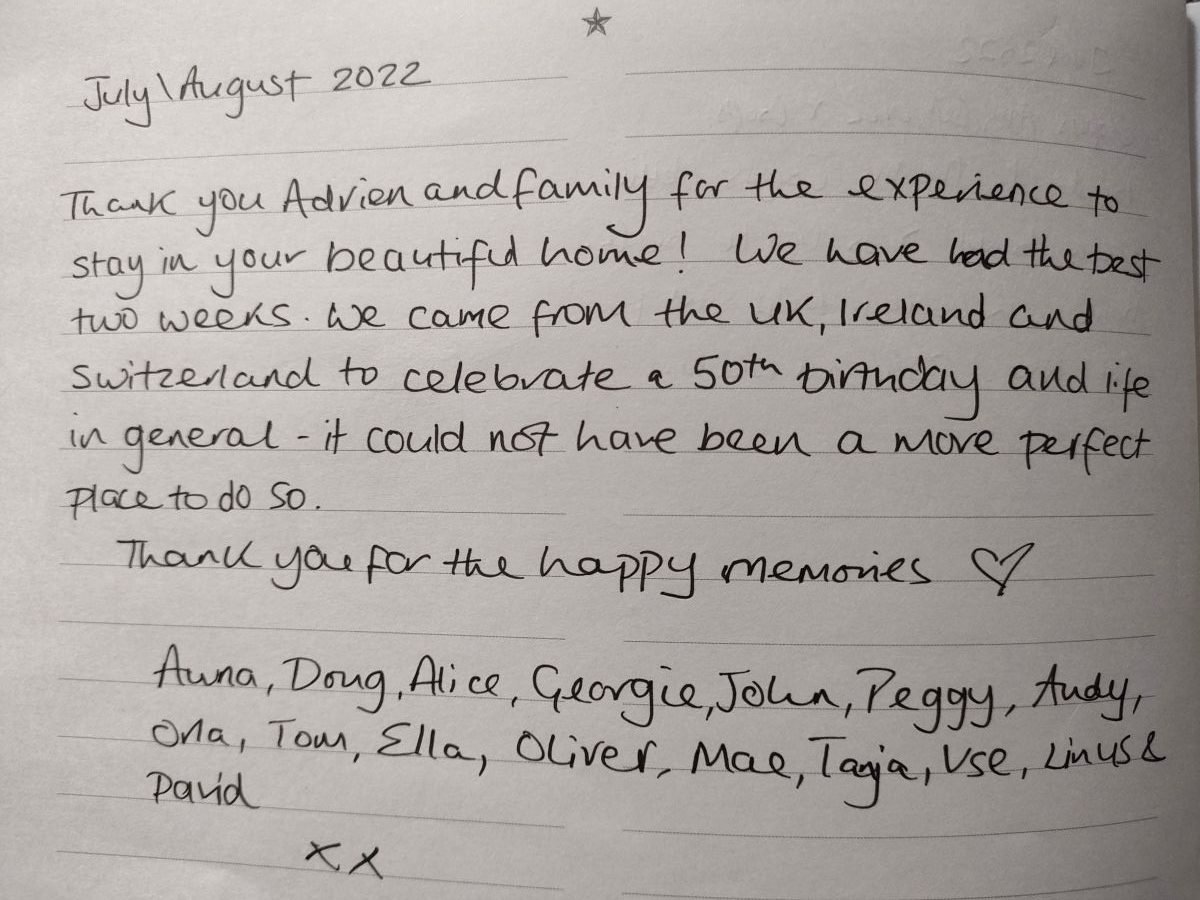 July\August 2022
Thank you Adrien and family for the experience to
stay in your beautiful home! We have had the best
two weeks. We came from the UK, Ireland and
Switzerland to celebrate a 50th birthday and life
in general - it could not have been a more perfect
place to do so.
Thank you for the happy memories ♡
Anna, Doug, Alice, Georgie, John, Peggy, Andy,
Orla, Tom, Ella, Oliver, Mae, Tanja, Linus &
David
xx